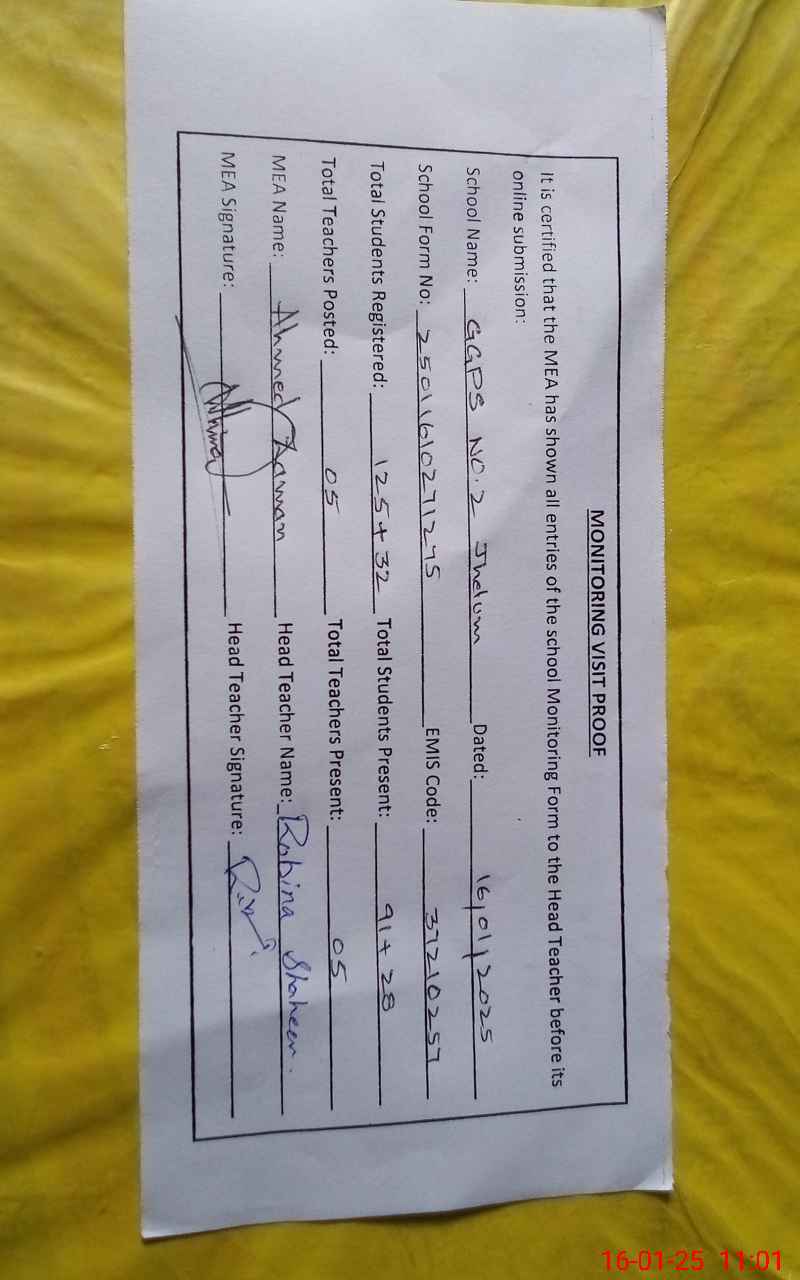 MONITORING VISIT PROOF
It is certified that the MEA has shown all entries of the school Monitoring Form to the Head Teacher before its
online submission:
School Name: GGPS NO.2 Jhelum Dated: 16/01/2025
School Form No: 25011610271275 EMIS Code: 37210257
Total Students Registered: 125+32 Total Students Present: 91+28
Total Teachers Posted: 05 Total Teachers Present: 05
MEA Name: Ahmed Zaman Head Teacher Name: Robina Shaheen.
MEA Signature: Head Teacher Signature:
16-01-25 11:01